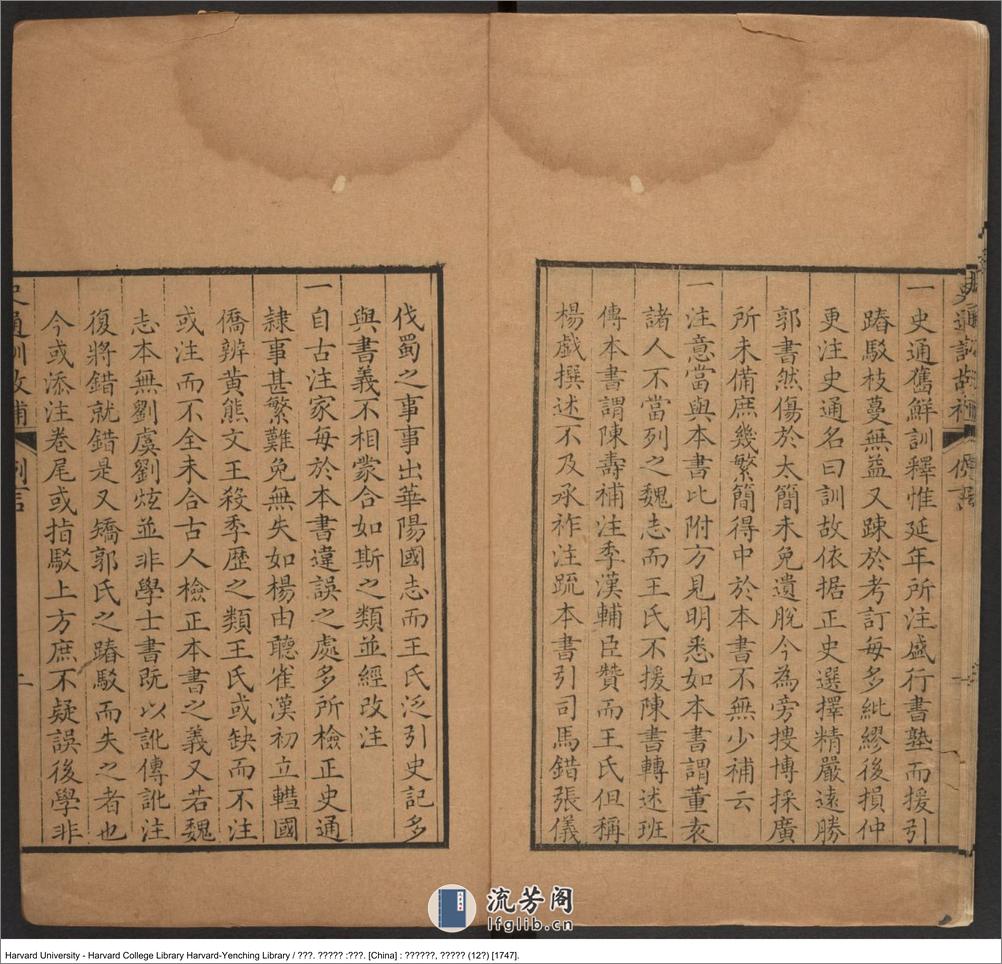 一史通舊鮮訓釋惟延年所注盛行書塾而援引
踳駁枝蔓無益又踈於考訂每多紕繆後損仲
更注史通名曰訓故依据正史選擇精嚴遠勝
郭書然傷於太簡未免遺脫今為旁搜博採廣
所未備庶幾繁簡得中於本書不無少補云
一注意當與本書比附方見明悉如本書謂董袁
諸人不當列之魏志而王氏不援陳書轉述班
傳本書謂陳壽補注季漢輔臣贊而王氏但稱
楊戲撰述不及承祚注䟽本書引司馬錯張儀
伐蜀之事事出華陽國志而王氏泛引史記多
與書義不相蒙合如斯之類並經改注
一自古注家每於本書違誤之處多所檢正史通
隸事甚繁難免無失如楊由聽雀漢初立轊國
僑辨黃熊文王殺季歷之類王氏或缺而不注
或注而不全未合古人檢正本書之義又若魏
志本無劉虞劉炫並非學士書既以訛傳訛注
復將錯就錯是又矯郭氏之踳駁而失之者也
今或添注卷尾或指駁上方庶不疑誤後學非
史通訓故補 例言 二
流芳阁
lfglib.cn
Harvard University - Harvard College Library Harvard-Yenching Library / ???. ????? :???. [China] : ??????, ????? (12?) [1747].